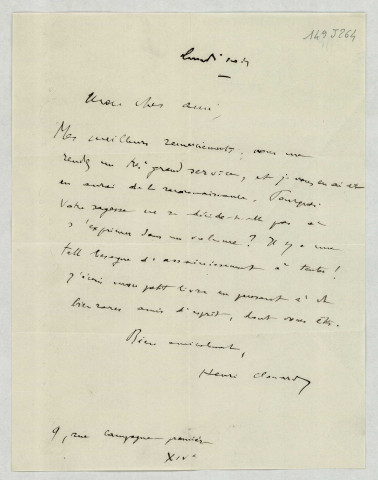 149 J 264
Lundi soir
Mon cher ami,
Mes meilleurs remerciements ; vous me
rendez un très grand service, et je vous en ai et
en aurai de la reconnaissance. Pourquoi
votre sagesse ne se décide-t-elle pas à
s'exprimer dans un volume ? Il y a une
telle besogne d'assainissement à tenter !
J'écris mon petit livre en pensant à
bien rares amis d'esprit, dont vous êtes.
Bien amicalement,
Henri Clouard
9, rue Campagne première
XIVe